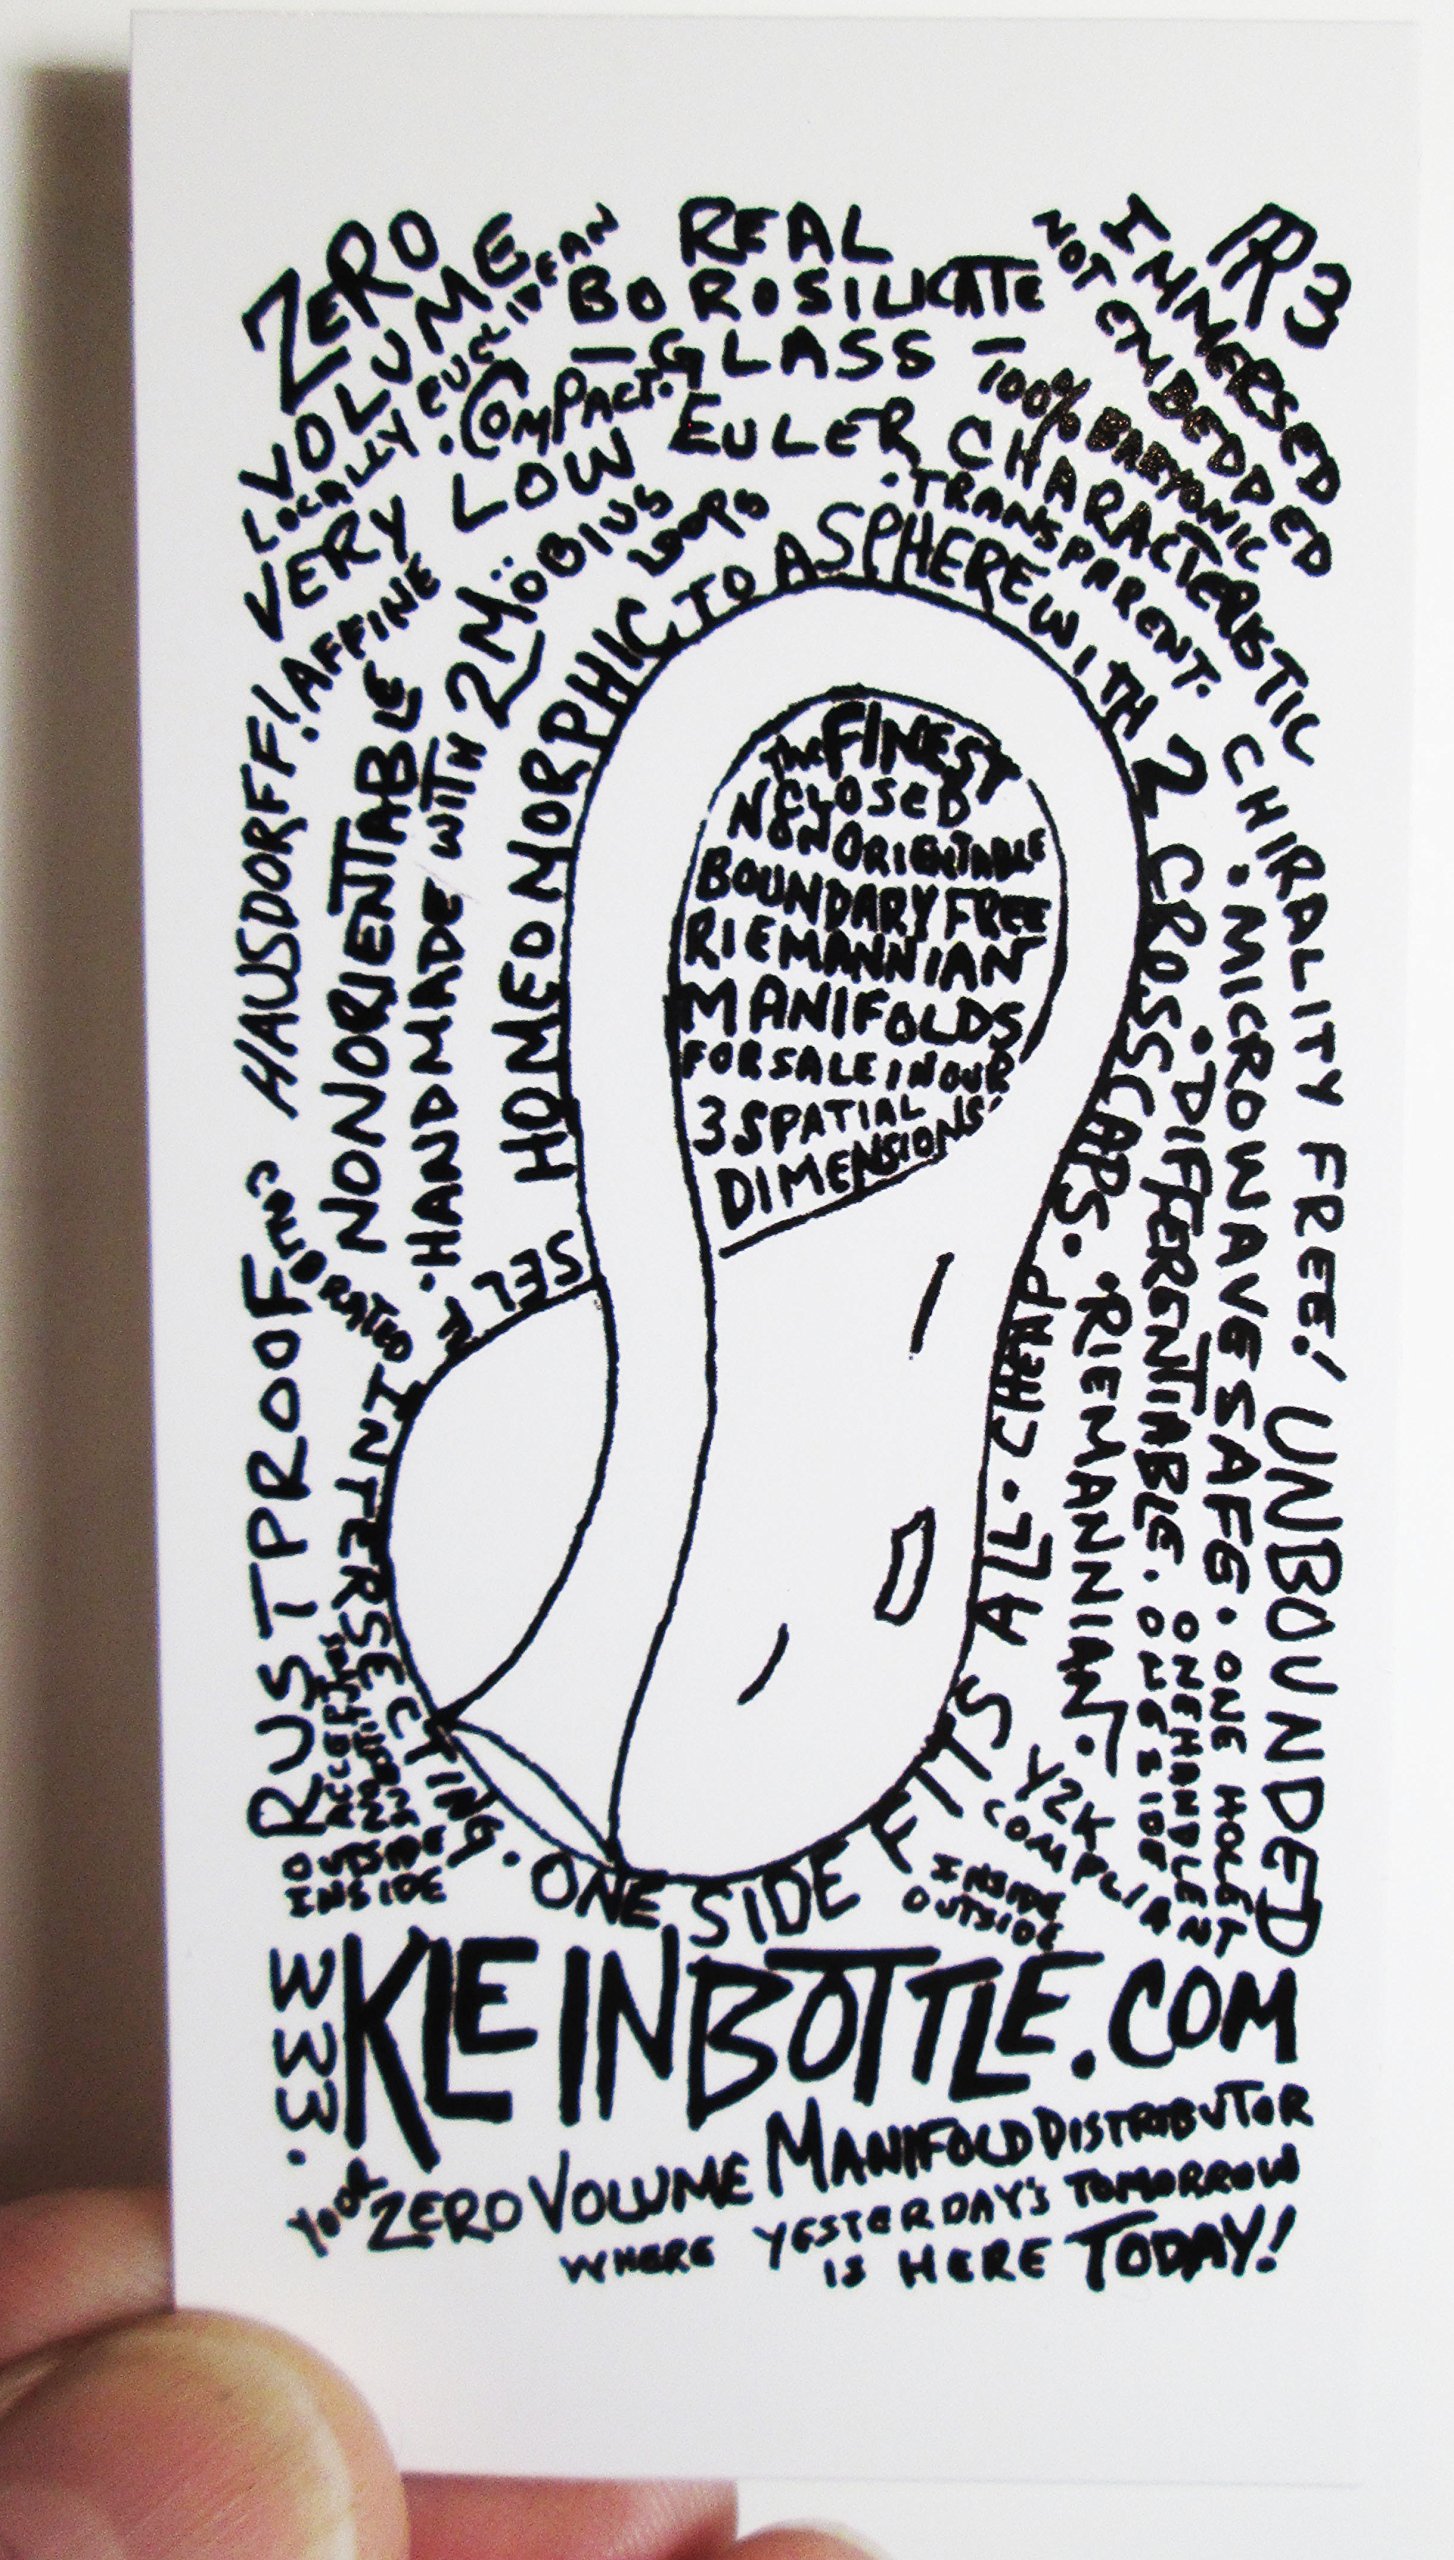 ZERO
VOLUME
LOCALLY EUCLIDEAN
.COMPACT.
REAL
BOROSILICATE
— GLASS —
100% BARYONIC
IMMERSED
NOT EMBEDDED
R3
VERY LOW EULER CHARACTERISTIC
.TRANSPARENT.
HAUSDORFF! AFFINE
NONORIENTABLE
.HANDMADE WITH 2 MÖBIUS LOOPS
HOMEOMORPHIC TO A SPHERE WITH 2 CROSSCAPS.
CHIRALITY FREE! UNBOUNDED
.MICROWAVE SAFE. ONE HOLE
.DIFFERENTIABLE. ONE HANDLE
ONE SIDE
.RIEMANNIAN.
THE FINEST
CLOSED
NONORIENTABLE
BOUNDARY FREE
RIEMANNIAN
MANIFOLDS
FOR SALE IN OUR
3 SPATIAL
DIMENSIONS
RUSTPROOF
SELF INTERSECTING. ONE SIDE FITS ALL. CHEAP
Y2K
COMPLIANT
OUTSIDE
INSIDE
INSIDE
OUTSIDE
WWW.
KLEINBOTTLE.COM
YOUR ZERO VOLUME MANIFOLD DISTRIBUTOR
WHERE YESTERDAY'S TOMORROW
IS HERE TODAY!